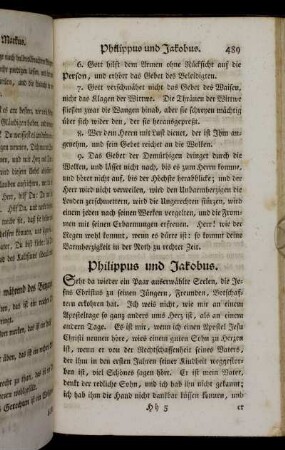 Philippus und Jakobus. 489
6. Gott hilft dem Armen ohne Rücksicht auf die
Person, und erhört das Gebet des Beleidigten.
7. Gott verschmähet nicht das Gebet des Waisen,
nicht das Klagen der Wittwe. Die Thränen der Wittwe
fließen zwar die Wangen hinab, aber sie schreyen mächtig
über sich wider den, der sie herauspreßt.
8. Wer dem Herrn mit Lust dienet, der ist Ihm an-
genehm, und sein Gebet reichet an die Wolken.
9. Das Gebet der Demüthigen dringet durch die
Wolken, und lässet nicht nach, bis es zum Herrn kommt,
und höret nicht auf, bis der Höchste herabblickt; und der
Herr wird nicht verweilen, wird den Unbarmherzigen die
Lenden zerschmettern, wird die Ungerechten stürzen, wird
einem jeden nach seinen Werken vergelten, und die From-
men mit seinen Erbarmungen erfreuen. Herr! wie der
Regen wohl kommt, wenn es dürre ist: so kommt deine
Barmherzigkeit in der Noth zu rechter Zeit.
Philippus und Jakobus.
Seht da wieder ein Paar auserwählte Seelen, die Je-
sus Christus zu seinen Jüngern, Freunden, Botschaf-
tern erkohren hat. Ich weis nicht, wie mir an einem
Aposteltage so ganz anders ums Herz ist, als an einem
andern Tage. Es ist mir, wenn ich einen Apostel Jesu
Christi nennen höre, wies einem guten Sohn zu Herzen
ist, wenn er von der Rechtschaffenheit seines Vaters,
der ihm in den ersten Jahren seiner Kindheit weggestor-
ben ist, viel Schönes sagen hört. Er ist mein Vater,
denkt der redliche Sohn, und ich hab ihn nicht gekannt;
ich hab ihm die Hand nicht dankbar küssen können, und
Hh 5 er